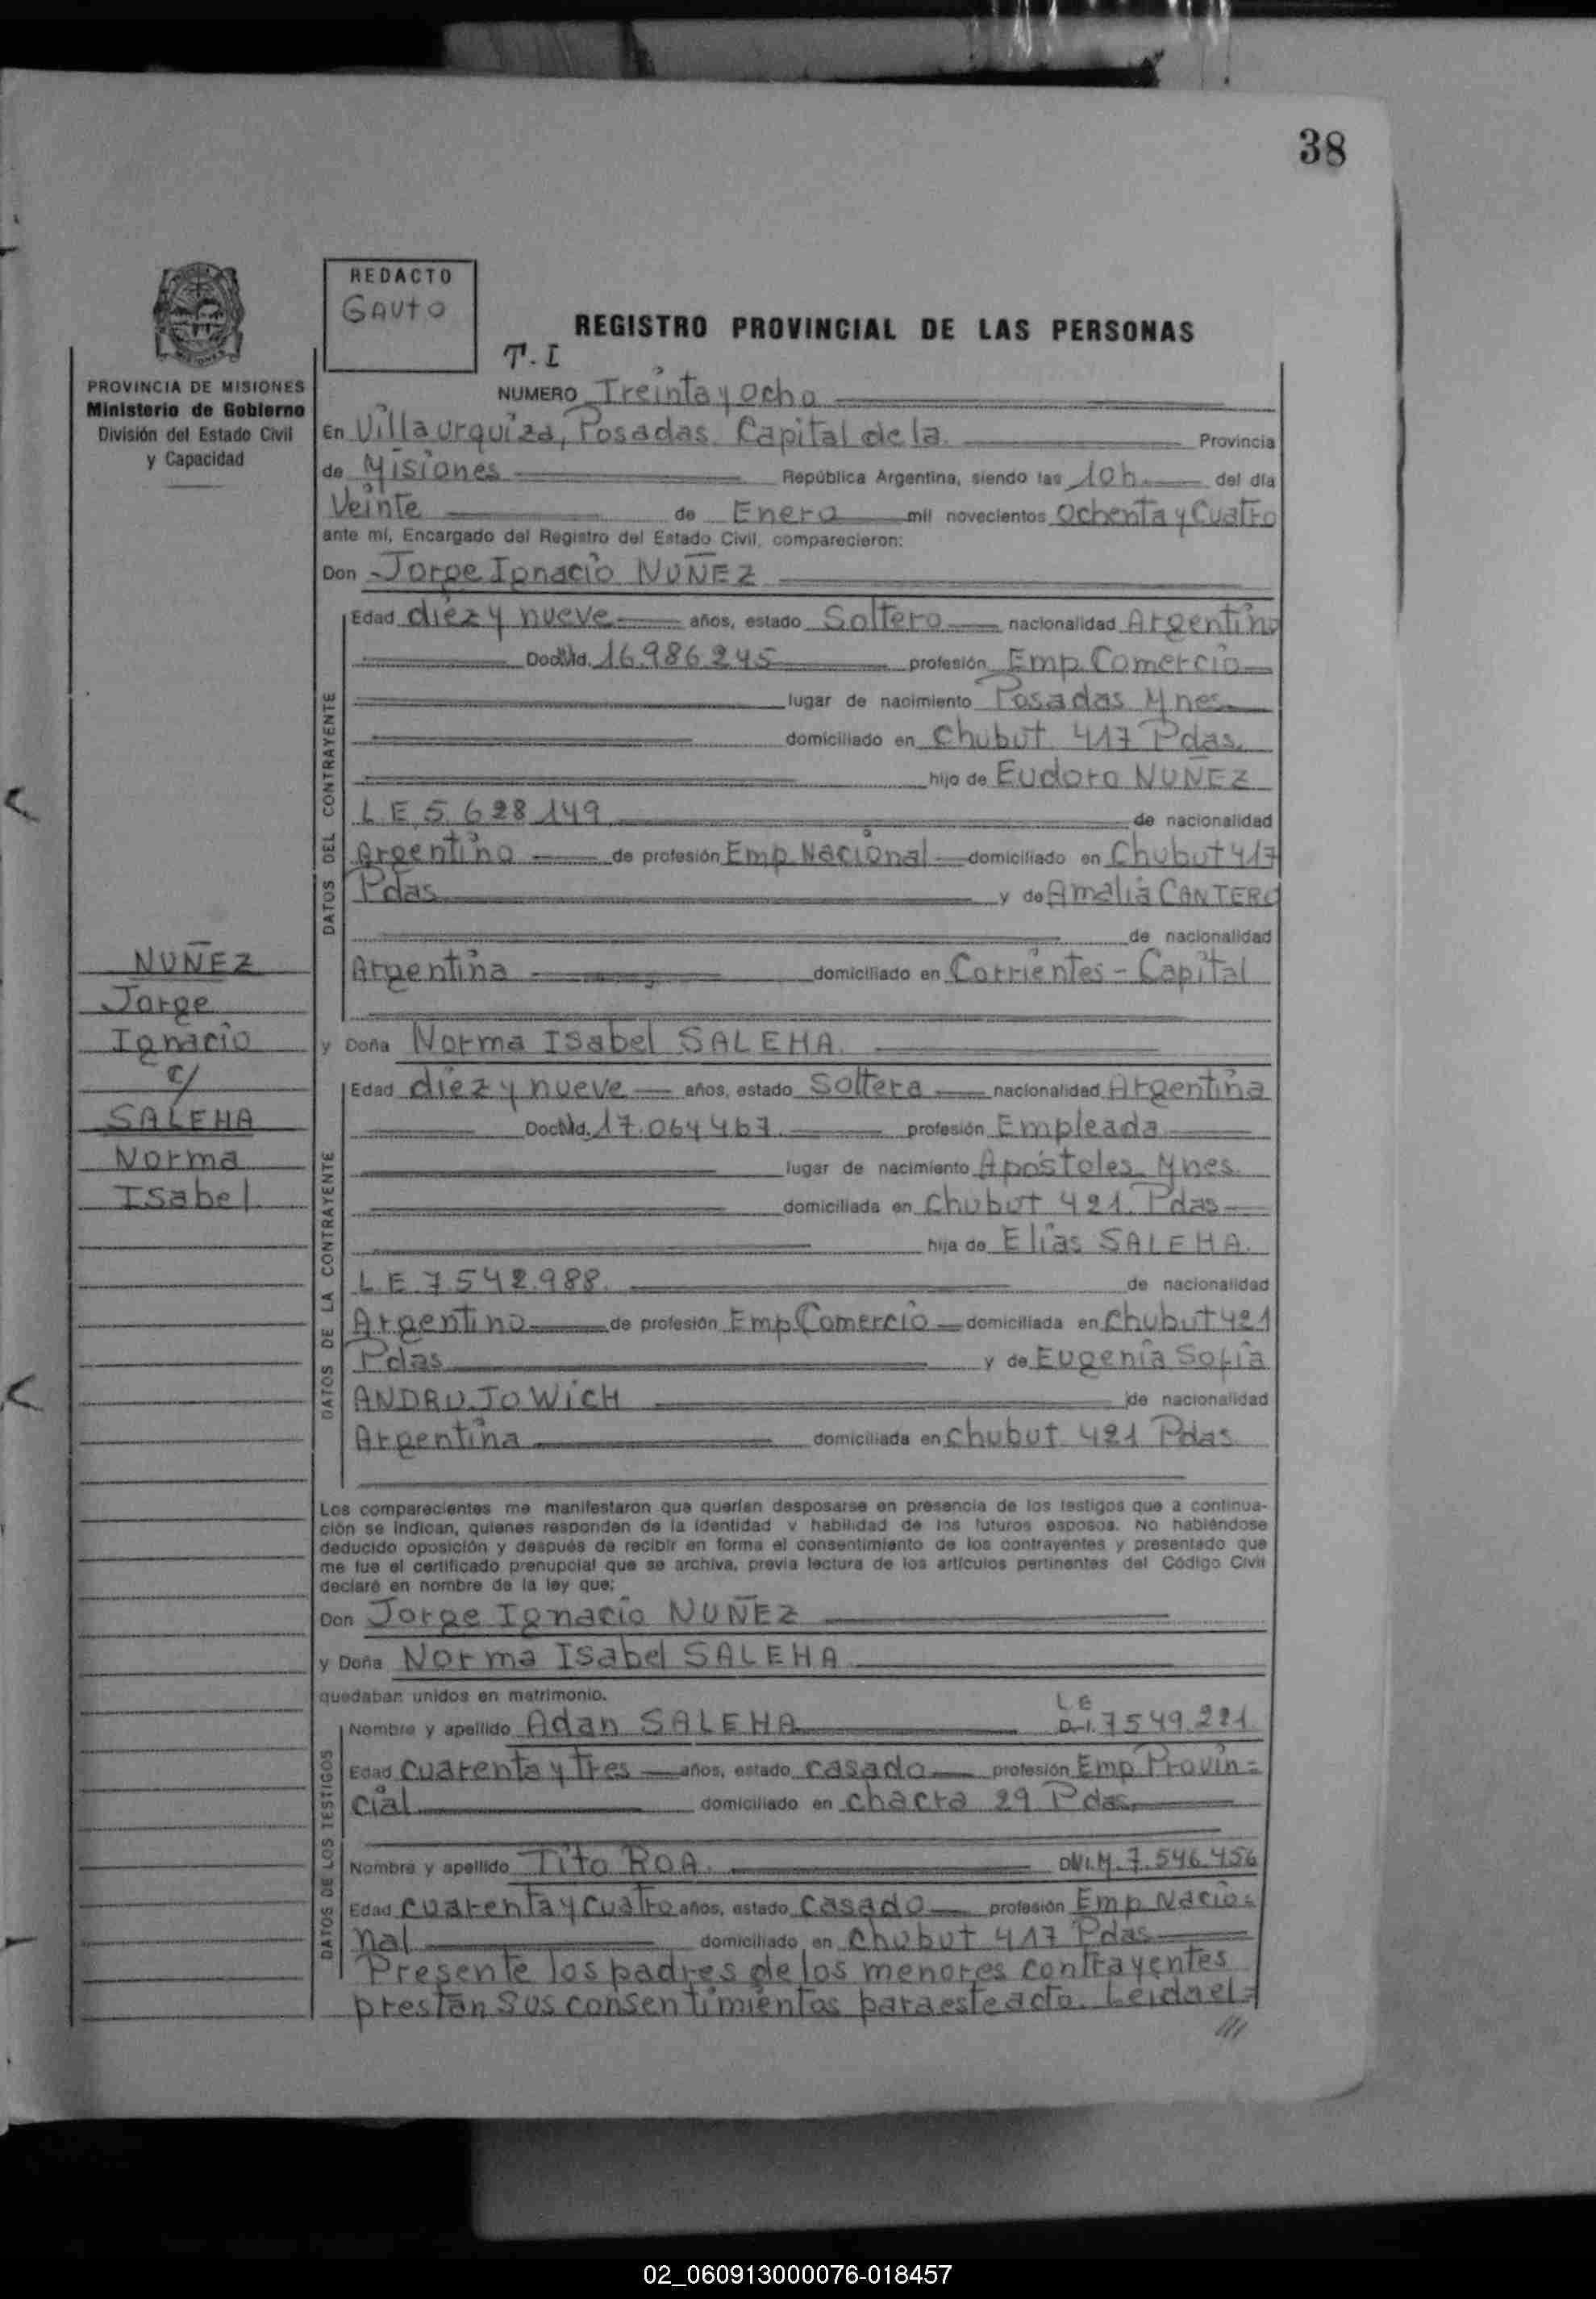 38
REDACTO
GAUTO
REGISTRO PROVINCIAL DE LAS PERSONAS
T. I
PROVINCIA DE MISIONES
Ministerio de Gobierno
División del Estado Civil
y Capacidad
NUMERO Treinta y Ocho
En Villa urquiza, Posadas. Capital de la Provincia
de Misiones República Argentina, siendo las 10h. del día
Veinte de Enero mil novecientos Ochenta y Cuatro
ante mí, Encargado del Registro del Estado Civil, comparecieron:
Don Jorge Ignacio NUÑEZ
DATOS DEL CONTRAYENTE
Edad diez y nueve años, estado Soltero nacionalidad Argentino
Doc. Nd. 16.986.245 profesión Emp. Comercio
lugar de nacimiento Posadas Mnes.
domiciliado en Chubut 417 Pdas.
hijo de Eudoro NUÑEZ
L E 5.628.149 de nacionalidad
Argentino de profesión Emp Nacional domiciliado en Chubut 417
Pdas y de Amalia CANTERO
de nacionalidad
Argentina domiciliado en Corrientes - Capital
y Doña Norma Isabel SALEHA.
NUÑEZ
Jorge
Ignacio
c/
SALEHA
Norma
Isabel
DATOS DE LA CONTRAYENTE
Edad diez y nueve años, estado Soltera nacionalidad Argentina
Doc. Nd. 17.064.467. profesión Empleada
lugar de nacimiento Apóstoles Mnes.
domiciliada en Chubut 421. Pdas
hija de Elias SALEHA.
L.E. 7.542.988. de nacionalidad
Argentino de profesión Emp Comercio domiciliada en Chubut 421
Pdas y de Eugenia Sofia
ANDRUJOWICH de nacionalidad
Argentina domiciliada en Chubut 421 Pdas
Los comparecientes me manifestaron que querían desposarse en presencia de los testigos que a continua-
ción se indican, quienes responden de la identidad y habilidad de los futuros esposos. No habiéndose
deducido oposición y después de recibir en forma el consentimiento de los contrayentes y presentado que
me fue el certificado prenupcial que se archiva, previa lectura de los artículos pertinentes del Código Civil
declaré en nombre de la ley que;
Don Jorge Ignacio NUÑEZ
y Doña Norma Isabel SALEHA
quedaban unidos en matrimonio.
DATOS DE LOS TESTIGOS
L E
Nombre y apellido Adan SALEHA D.I. 7549.221
Edad cuarenta y tres años, estado casado profesión Emp Provin=
cial domiciliado en chacra 29 Pdas.
Nombre y apellido Tito ROA. DNI. M. 7.546.456
Edad cuarenta y cuatro años, estado casado profesión Emp Nacio=
nal domiciliado en Chubut 417 Pdas
Presente los padres de los menores contrayentes
prestan sus consentimientos para este acto. Leida el =
///
02_060913000076-018457